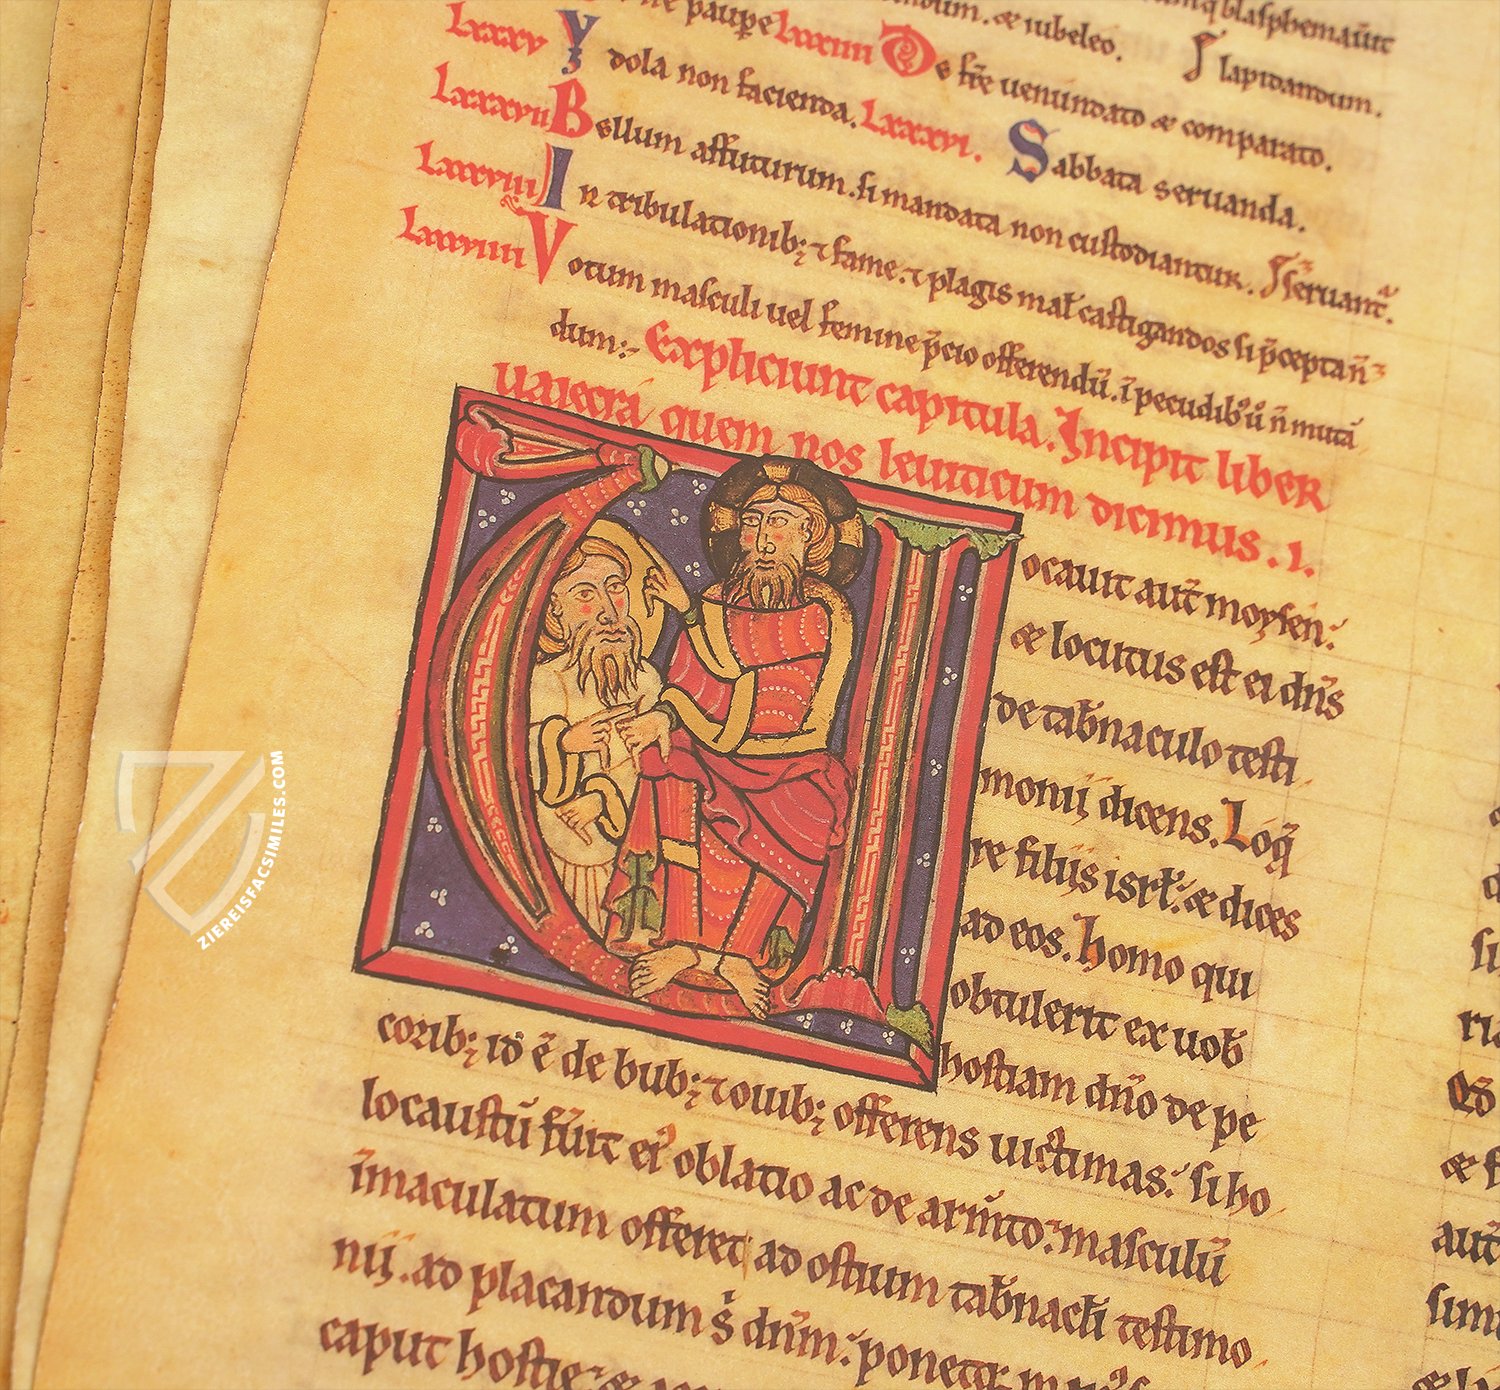 ne paupe Lxxxiiii De fr̄e uenundato & comparato.
dum. & iubeleo. blasphemauīt
ſ lapidandum.
Lxxxv Ydola non facienda. Lxxxvi. Sabbata seruanda.
Lxxxvii Bellum affuturum. si mandata non custodiantur. ſ seruant̄.
Lxxxviii In tribulationib; ⁊ fame. ⁊ plagis mat̄ castigandos si p̄cepta n̄
Lxxxviiii Votum masculi uel femine p̄cio offerendū. ī pecudibꝰ ū n̄ mutā
dum:- Expliciunt capitula. Incipit liber
uaiecra quem nos leuiticum dicimus. i.
ocauit aut̄ moysen:
& locutus est ei dn̄s
de tab̄naculo testi
monij dicens. Loq̄
re filijs isrł: & dices
ad eos. homo qui
obtulerit ex uob̄
hostiam dn̄o de pe
corib; id ē de bub; ⁊ ouib; offerens uictimas: si ho
locaustū fu̅it eiꝰ oblatio ac de arm̄to: masculū
īmaculatum offeret ad ostium tab̄nacłi testimo
nij. ad placandum s̄ dn̄m: ponetqꝫ
caput hostie &
ZIEREISFACSIMILES.COM